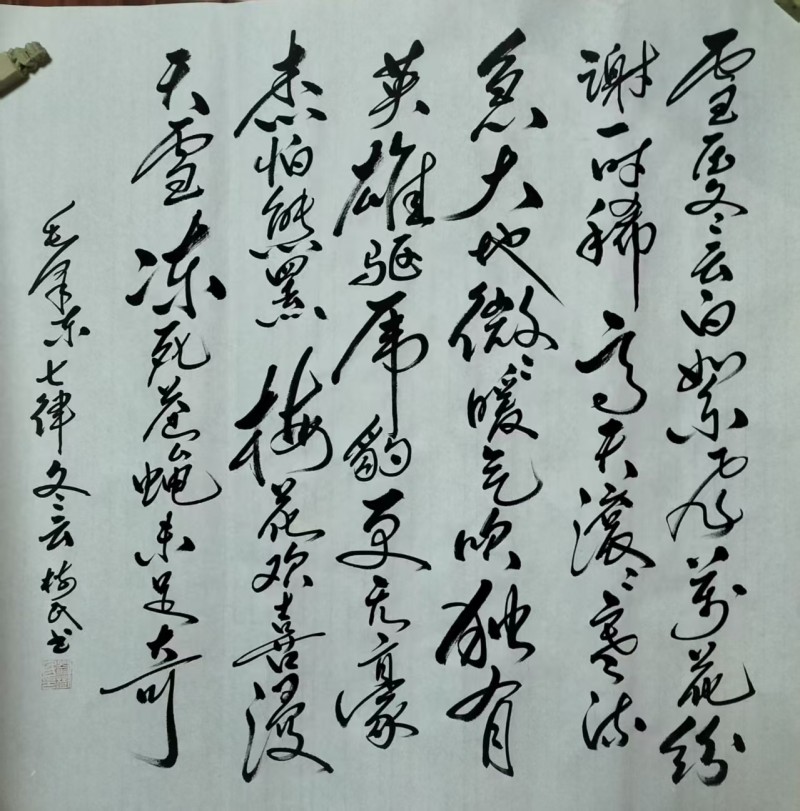 雪压冬云白絮飞萬花纷
谢一时稀高天滚滚寒流
急大地微微暖气吹独有
英雄驱虎豹更无豪
杰怕熊罴梅花欢喜漫
天雪冻死苍蝇未足奇
毛泽东七律冬云 树民书